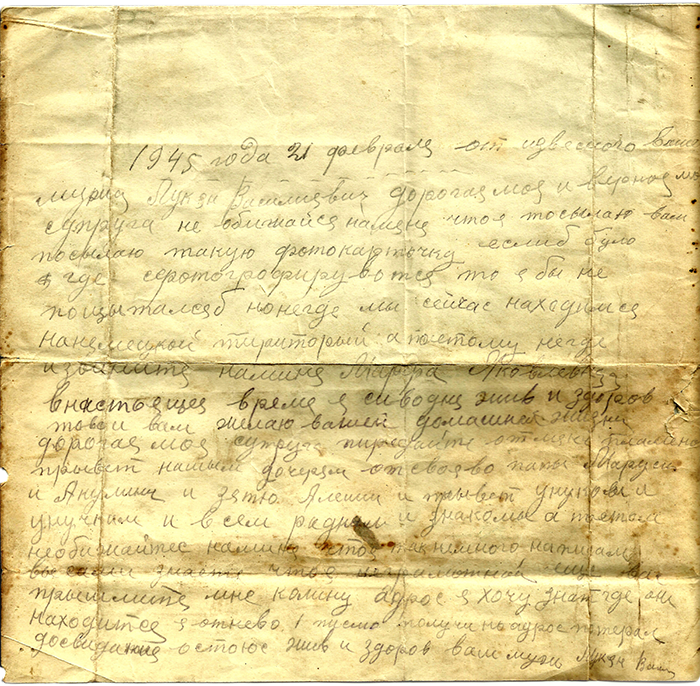 1945 года 21 февраля от извесного Ваш
мужа Лукян Василиевич дорогая моя и верная мо
супруга не обижайся намене что я посылаю вам
посылаю такую фотокарточку еслиб було
где сфотогрофируватся то я бы не
но негде мы сейчас находимся
нанемецкой тириторый а поетому негде
извините намине Марфа Яковлевна
внастоящея время я сиводня жив и здоров
тово и вам жилаю вашей домашней жизни
дорогая моя супруга пиридайте от мене пламино
прывет нашым дочерем отсвоево папы Маруси
и Акулини и зятю Алеши и прывет унукови и
унучкам и всем радным и знакомы а потом
необижайтес намине што я так немного написал
вы сами знаете что я неграмотной еще
прышлите мне адрос я хочу знат где он
находится я отнево 1 писмо получил адрос потерал
досвидания остоюс жив и здоров ваш муж Лукян Вас